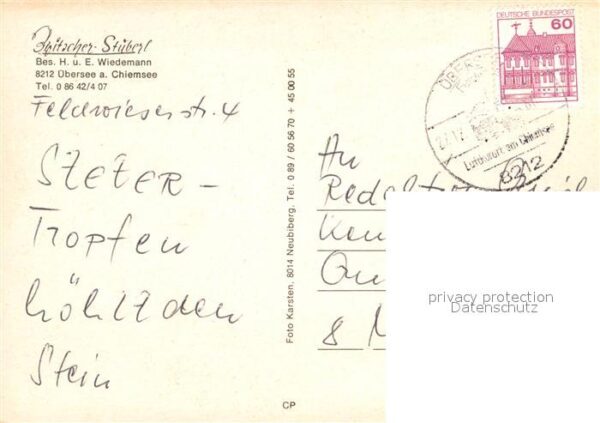 Zwitscher-Stüberl
Bes. H. u. E. Wiedemann
8212 Übersee a. Chiemsee
Tel. 0 86 42/4 07
Feldwieserstr. 4
STETER -
Tropfen
höhlt den
Stein
Foto Karsten, 8014 Neubiberg, Tel. 0 89 / 60 56 70 + 45 00 55
CP
DEUTSCHE BUNDESPOST
60
Luftkurort am Chiemsee
8212
An
privacy protection
Datenschutz
8